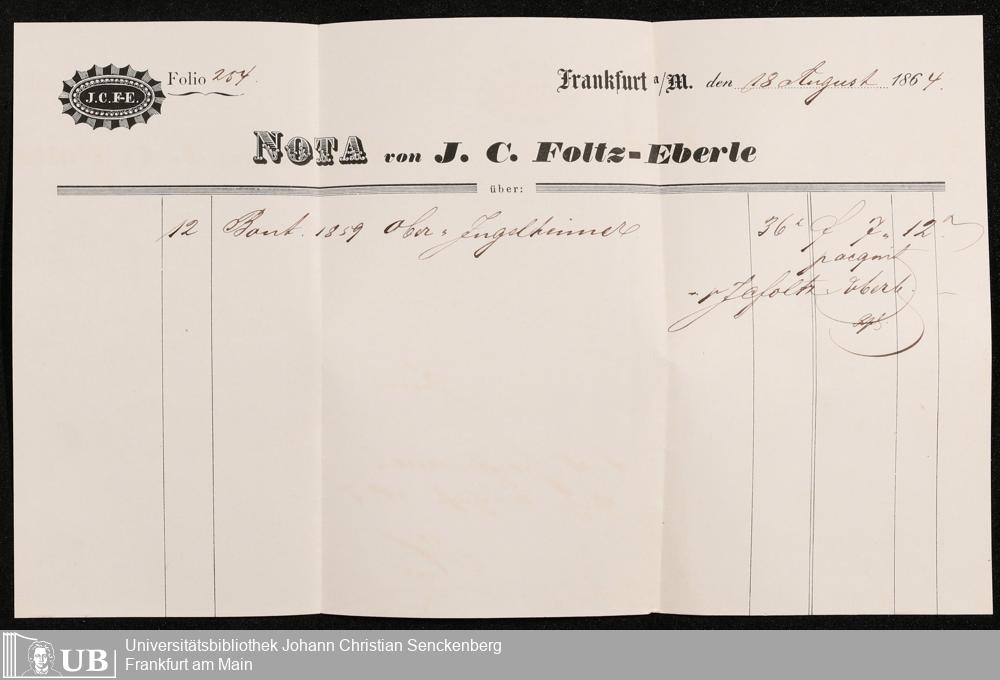 J.C.F-E.
Folio 254.
Frankfurt a/M. den 13 August 1864.
NOTA von J. C. Foltz-Eberle
über:
12 Bout. 1859 Ober-Ingelheimer 36x f 7 " 12
JCFoltz Eberle
UB
Universitätsbibliothek Johann Christian Senckenberg
Frankfurt am Main